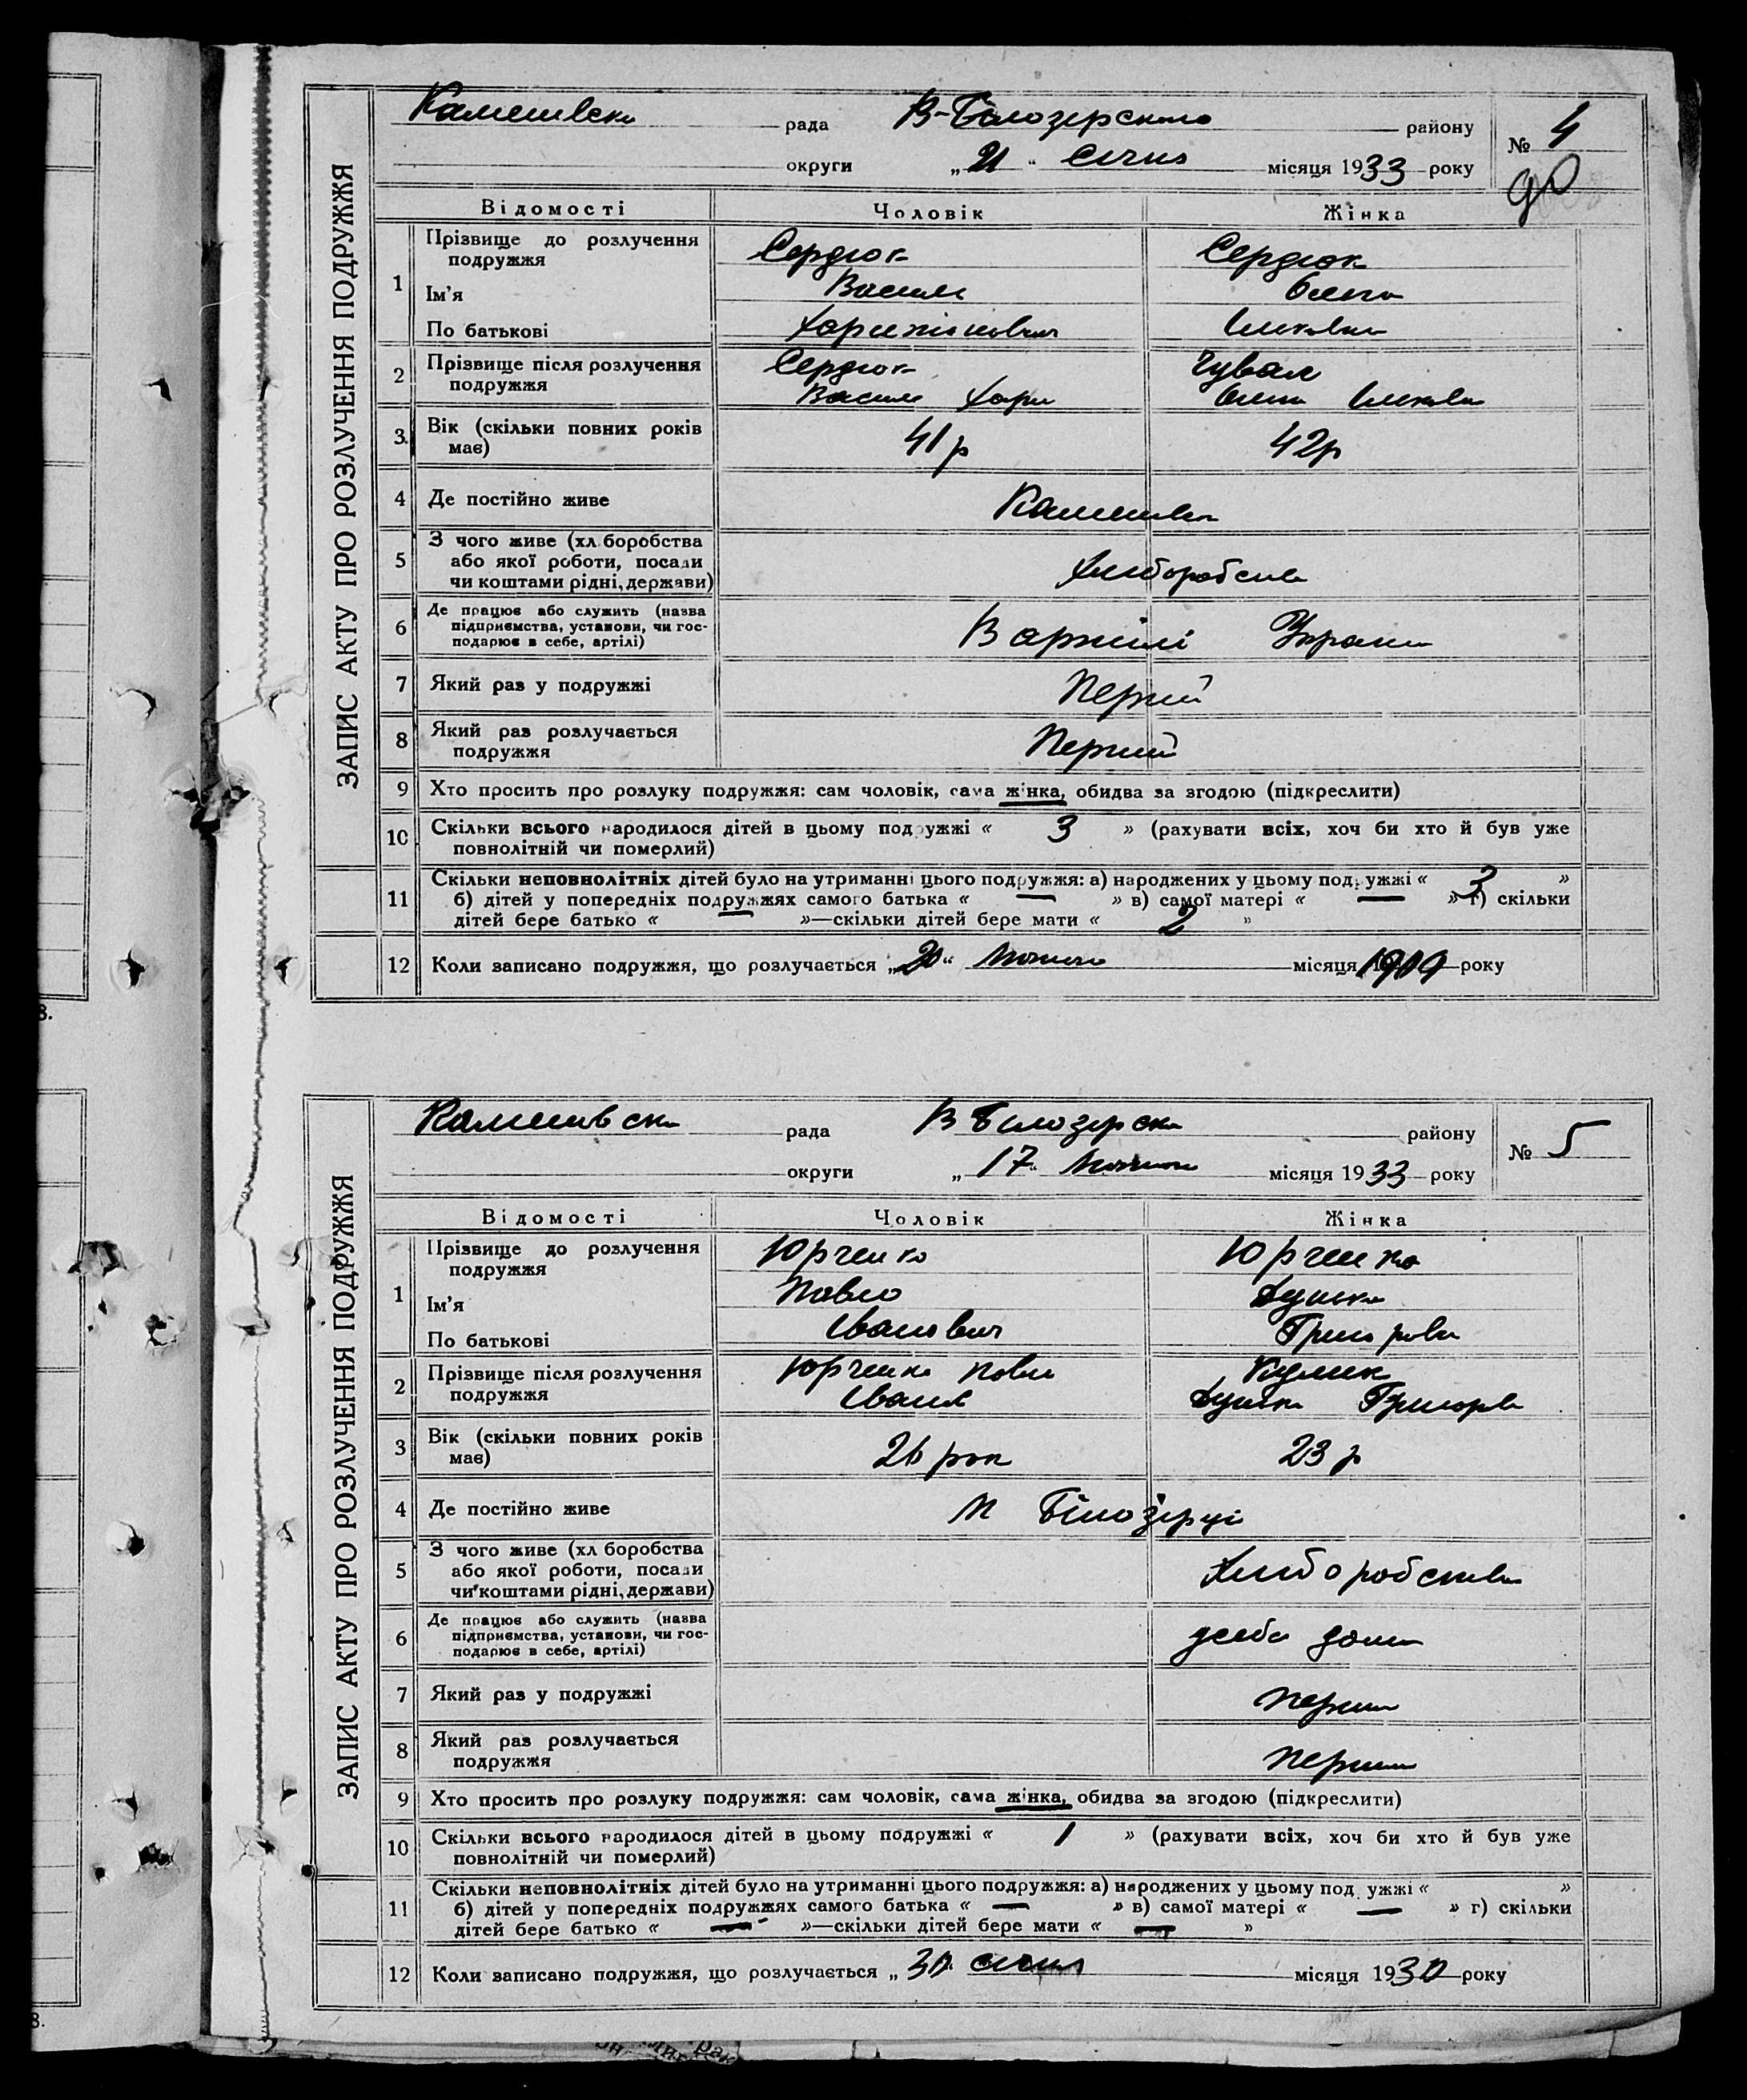 ЗАПИС АКТУ ПРО РОЗЛУЧЕННЯ ПОДРУЖЖЯ
рада В-Білозерского району № 4
округи „21“ Січня місяця 1933 року
90
Відомості Чоловік Жінка
1 Прізвище до розлучення подружжя Сердюк Сердюк
Ім'я Василь
По батькові
2 Прізвище після розлучення Сердюк Чувал
подружжя Василь Хари
3. Вік (скільки повних років має) 41 р 42 р
4 Де постійно живе
5 З чого живе (хліборобства
або якої роботи, посади
чи коштами рідні, держави) Хліборобства
6 Де працює або служить (назва
підприємства, установи, чи гос-
подарює в себе, артілі) В артілі
7 Який раз у подружжі Перший
8 Який раз розлучається
подружжя Перший
9 Хто просить про розлуку подружжя: сам чоловік, сама жінка, обидва за згодою (підкреслити)
10 Скільки всього народилося дітей в цьому подружжі « 3 » (рахувати всіх, хоч би хто й був уже
повнолітній чи померлий)
11 Скільки неповнолітніх дітей було на утриманні цього подружжя: а) народжених у цьому подружжі « 3 »
б) дітей у попередніх подружжях самого батька « — » в) самої матері « — » г) скільки
дітей бере батько « — »—скільки дітей бере мати « 2 »
12 Коли записано подружжя, що розлучається „20“ Лютого місяця 1919 року
ЗАПИС АКТУ ПРО РОЗЛУЧЕННЯ ПОДРУЖЖЯ
рада В Білозерск району № 5
округи „17“ Лютого місяця 1933 року
Відомості Чоловік Жінка
1 Прізвище до розлучення подружжя Юрченко Юрченко
Ім'я Павло
По батькові Іванович
2 Прізвище після розлучення Юрченко Павло Кулик
подружжя
3 Вік (скільки повних років має) 26 рок 23 р
4 Де постійно живе М Білозірці
5 З чого живе (хліборобства
або якої роботи, посади
чи коштами рідні, держави) Хліборобства
6 Де працює або служить (назва
підприємства, установи, чи гос-
подарює в себе, артілі) усебе дома
7 Який раз у подружжі перший
8 Який раз розлучається
подружжя перший
9 Хто просить про розлуку подружжя: сам чоловік, сама жінка, обидва за згодою (підкреслити)
10 Скільки всього народилося дітей в цьому подружжі « 1 » (рахувати всіх, хоч би хто й був уже
повнолітній чи померлий)
11 Скільки неповнолітніх дітей було на утриманні цього подружжя: а) народжених у цьому подружжі « »
б) дітей у попередніх подружжях самого батька « — » в) самої матері « — » г) скільки
дітей бере батько « — »—скільки дітей бере мати « — »
12 Коли записано подружжя, що розлучається „30“ січня місяця 1930 року